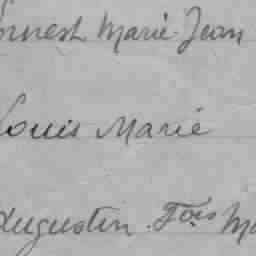 Ernest Marie Jean
Louis Marie
Augustin Fois Ma